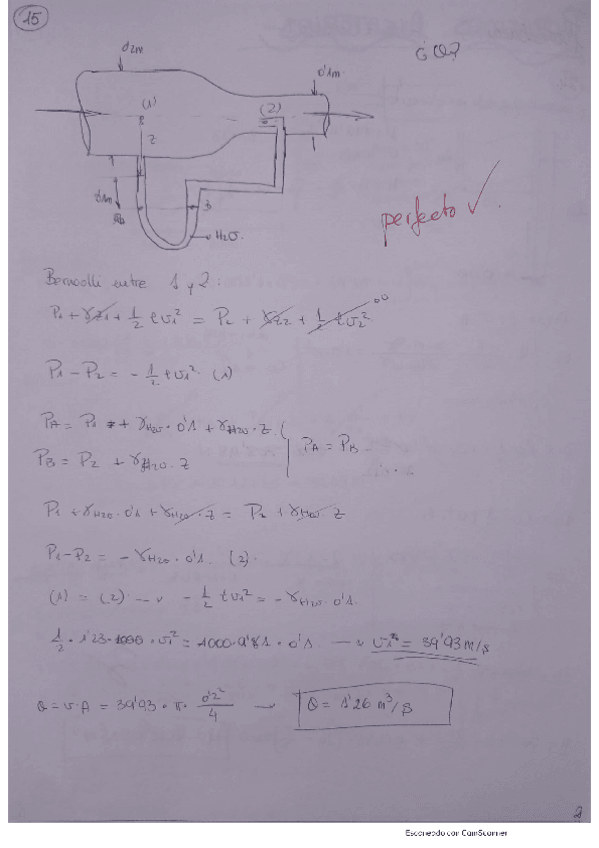 15
0'2m
0'1m
¿Q?
(1)
(2)
z
0'1m
B
H2O.
perfecto ✓
Bernoulli entre 1 y 2:
P1 + γz1 + 1/2 ρv1² = P2 + γz2 + 1/2 ρv2² 0
P1 - P2 = - 1/2 ρv1² (1)
PA = P1 + γH2O · 0'1 + γH2O · z
PB = P2 + γH2O · z
PA = PB
P1 + γH2O · 0'1 + γH2O · z = P2 + γH2O · z
P1 - P2 = - γH2O · 0'1. (2).
(1) = (2) → - 1/2 ρv1² = - γH2O · 0'1.
1/2 · 1'23 · v1² = 1000 · 9'81 · 0'1 → v1 = 39'93 m/s
Q = v·A = 39'93 · π · 0'2²/4 → Q = 1'26 m³/s
2
Escaneado con CamScanner